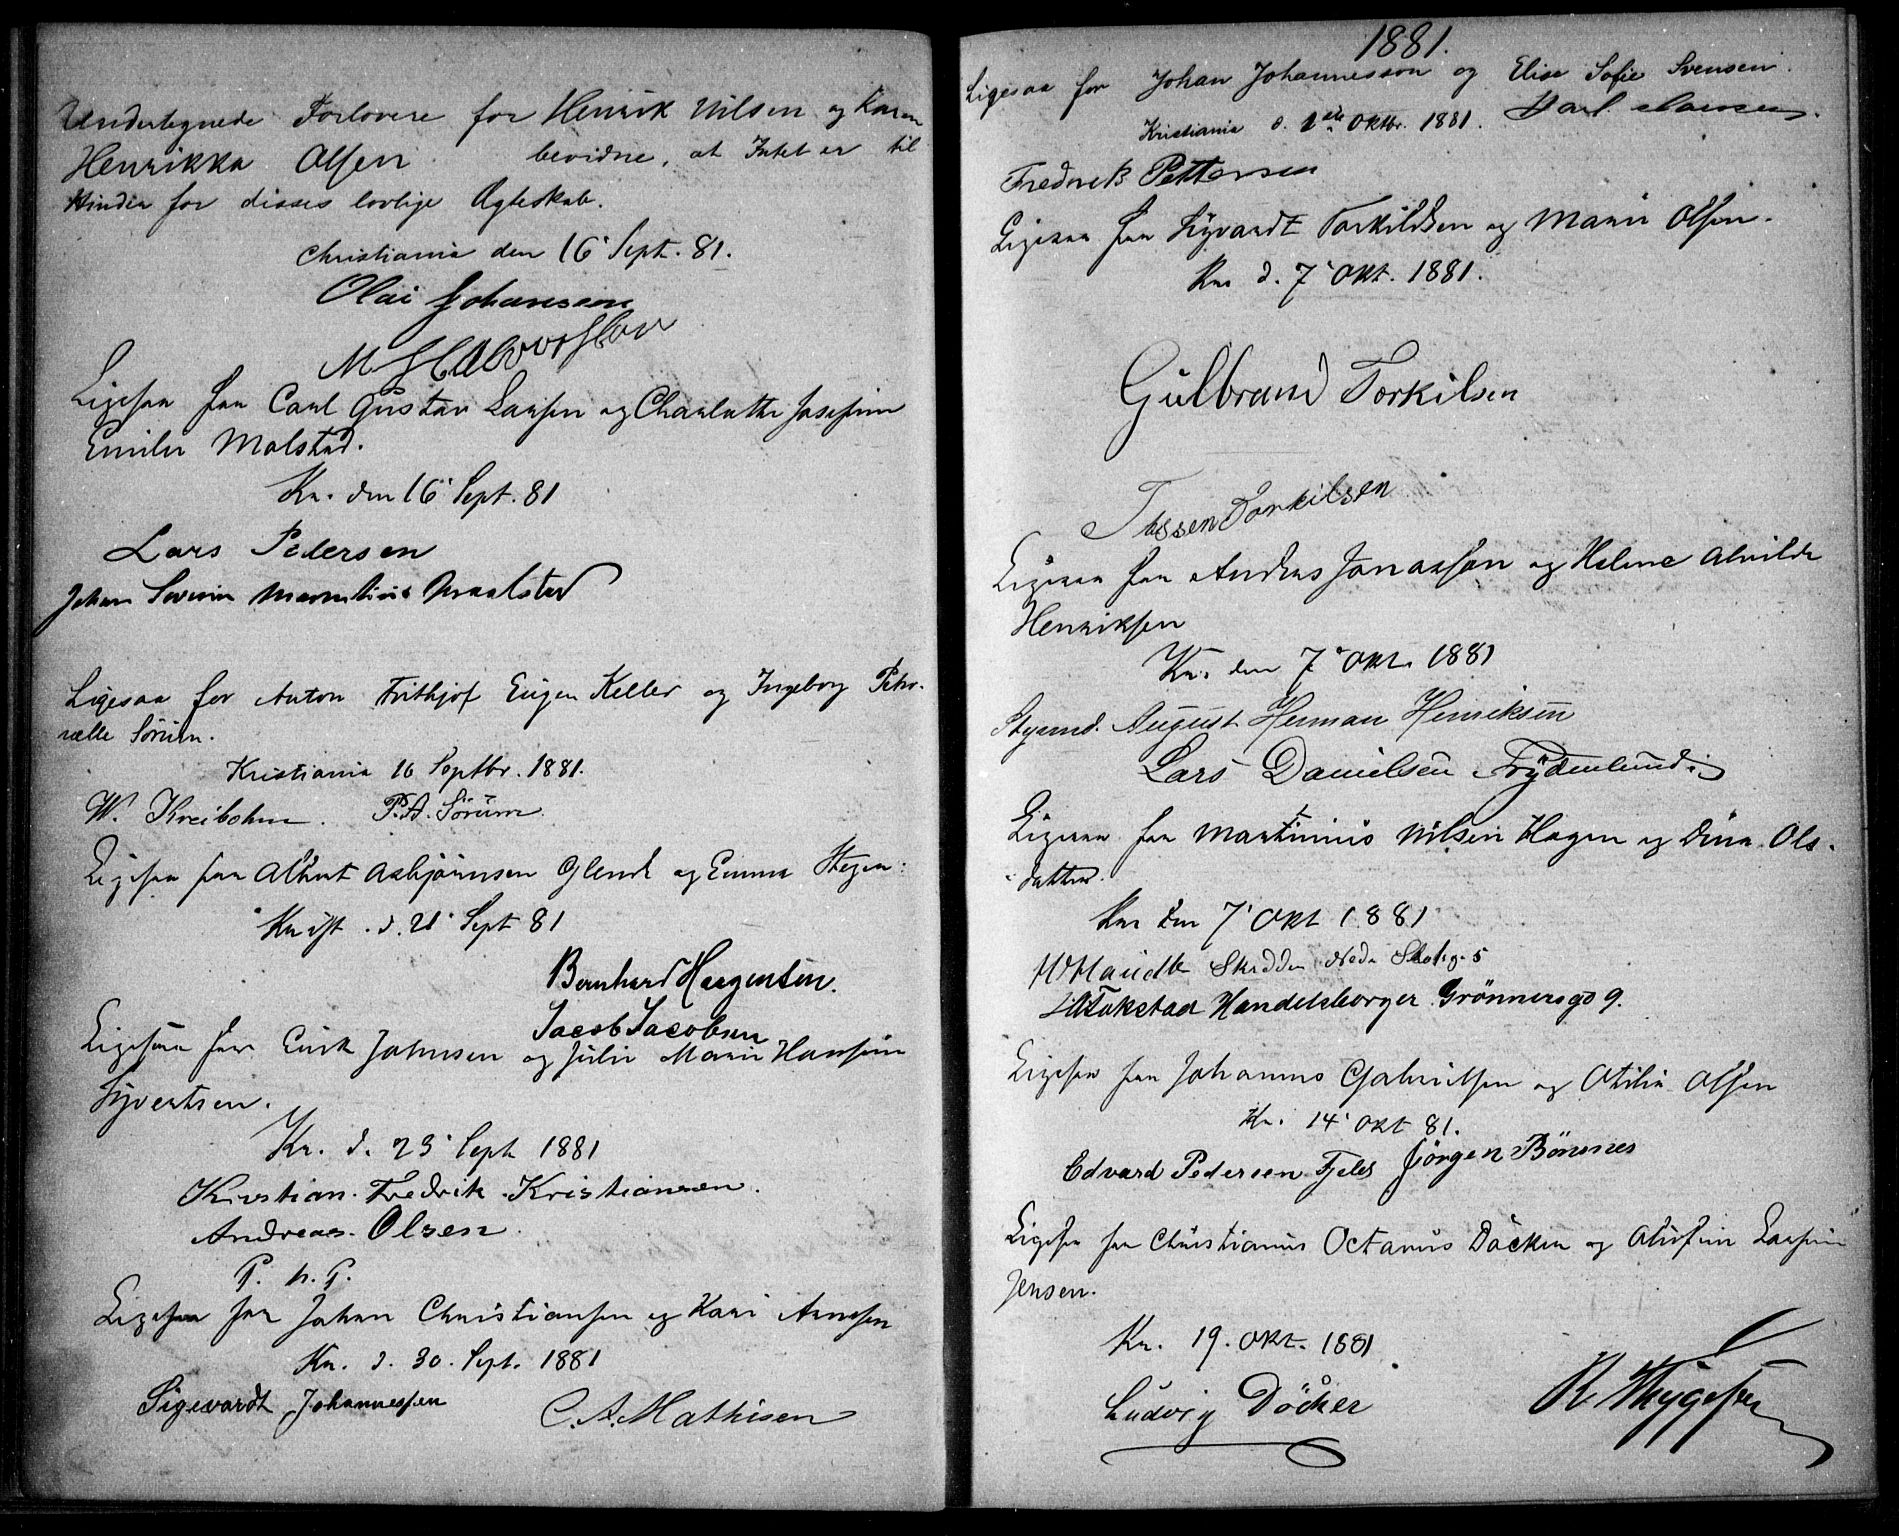 Undertegnede Forlovere for Henrik Nilsen og Karen
Henrikka Olsen bevidne, at Intet er til
Hinder for disses lovlige Ægteskab.
Christiania den 16' Sept. 81.
Olai Johansen
M Halvorsen
Ligesaa for Carl Gustav Larsen og Charlotte Josefine
Emilie Malstad.
Kr. den 16' Sept. 81
Lars Pedersen
Johan Severin Maalstad
Ligesaa for Anton Frithjof Eugen Keller og Ingeborg Petro-
nelle Sörum.
Kristiania 16 Septbr. 1881.
W. Kreibohm. P.A. Sörum
Ligesaa for Albert Asbjörnsen Glende og Emma Hegen.
Krist. d. 21' Sept 81
Bernhard Haagensen.
Jacob Jacobsen
Ligesaa for Erik Johnsen og Julie Marie Hansine
Syvertsen.
Kr. d. 23' Sept 1881
Kristian Fredrik Kristiansen.
Andreas Olsen
Ligesaa for Johan Christiansen og Kari Arnesen
Kr. d. 30. Sept. 1881
Sigevardt Johannessen C. A. Mathisen
1881.
Ligesaa for Johan Johannesson og Elise Sofie Svensen.
Kristiania d. 1ste Oktbr. 1881. Karl Hansen.
Fredrick Pettersen
Ligesaa for Syvardt Torkildsen og Marie Olsen.
Kr d. 7' Okt. 1881.
Gulbrand Torkilsen
Torkilsen
Ligesaa for Anders Jonassen og Helene Alvilde
Henriksen
Kr. den 7' Okt. 1881
August Herman Henriksen
Lars Danielsen Frydenlund.
Ligesaa for Martinius Nilsen Hagen og Dina Ols-
datter.
Kr den 7' Okt 1881
Skrædder Nedr Slotsg. 5
Handelsborger Grönnersgd 9.
Ligesaa for Johannes Gabrielsen og Otilia Olsen
Kr. 14' Okt 81.
Edvard Pedersen Fjeld Jörgen Börsnes
Ligesaa for Christianus Octavius Döcker og Olufine Larsine
Jensen.
Kr. 19. Okt. 1881
Ludvig Döcker R. Thygesen